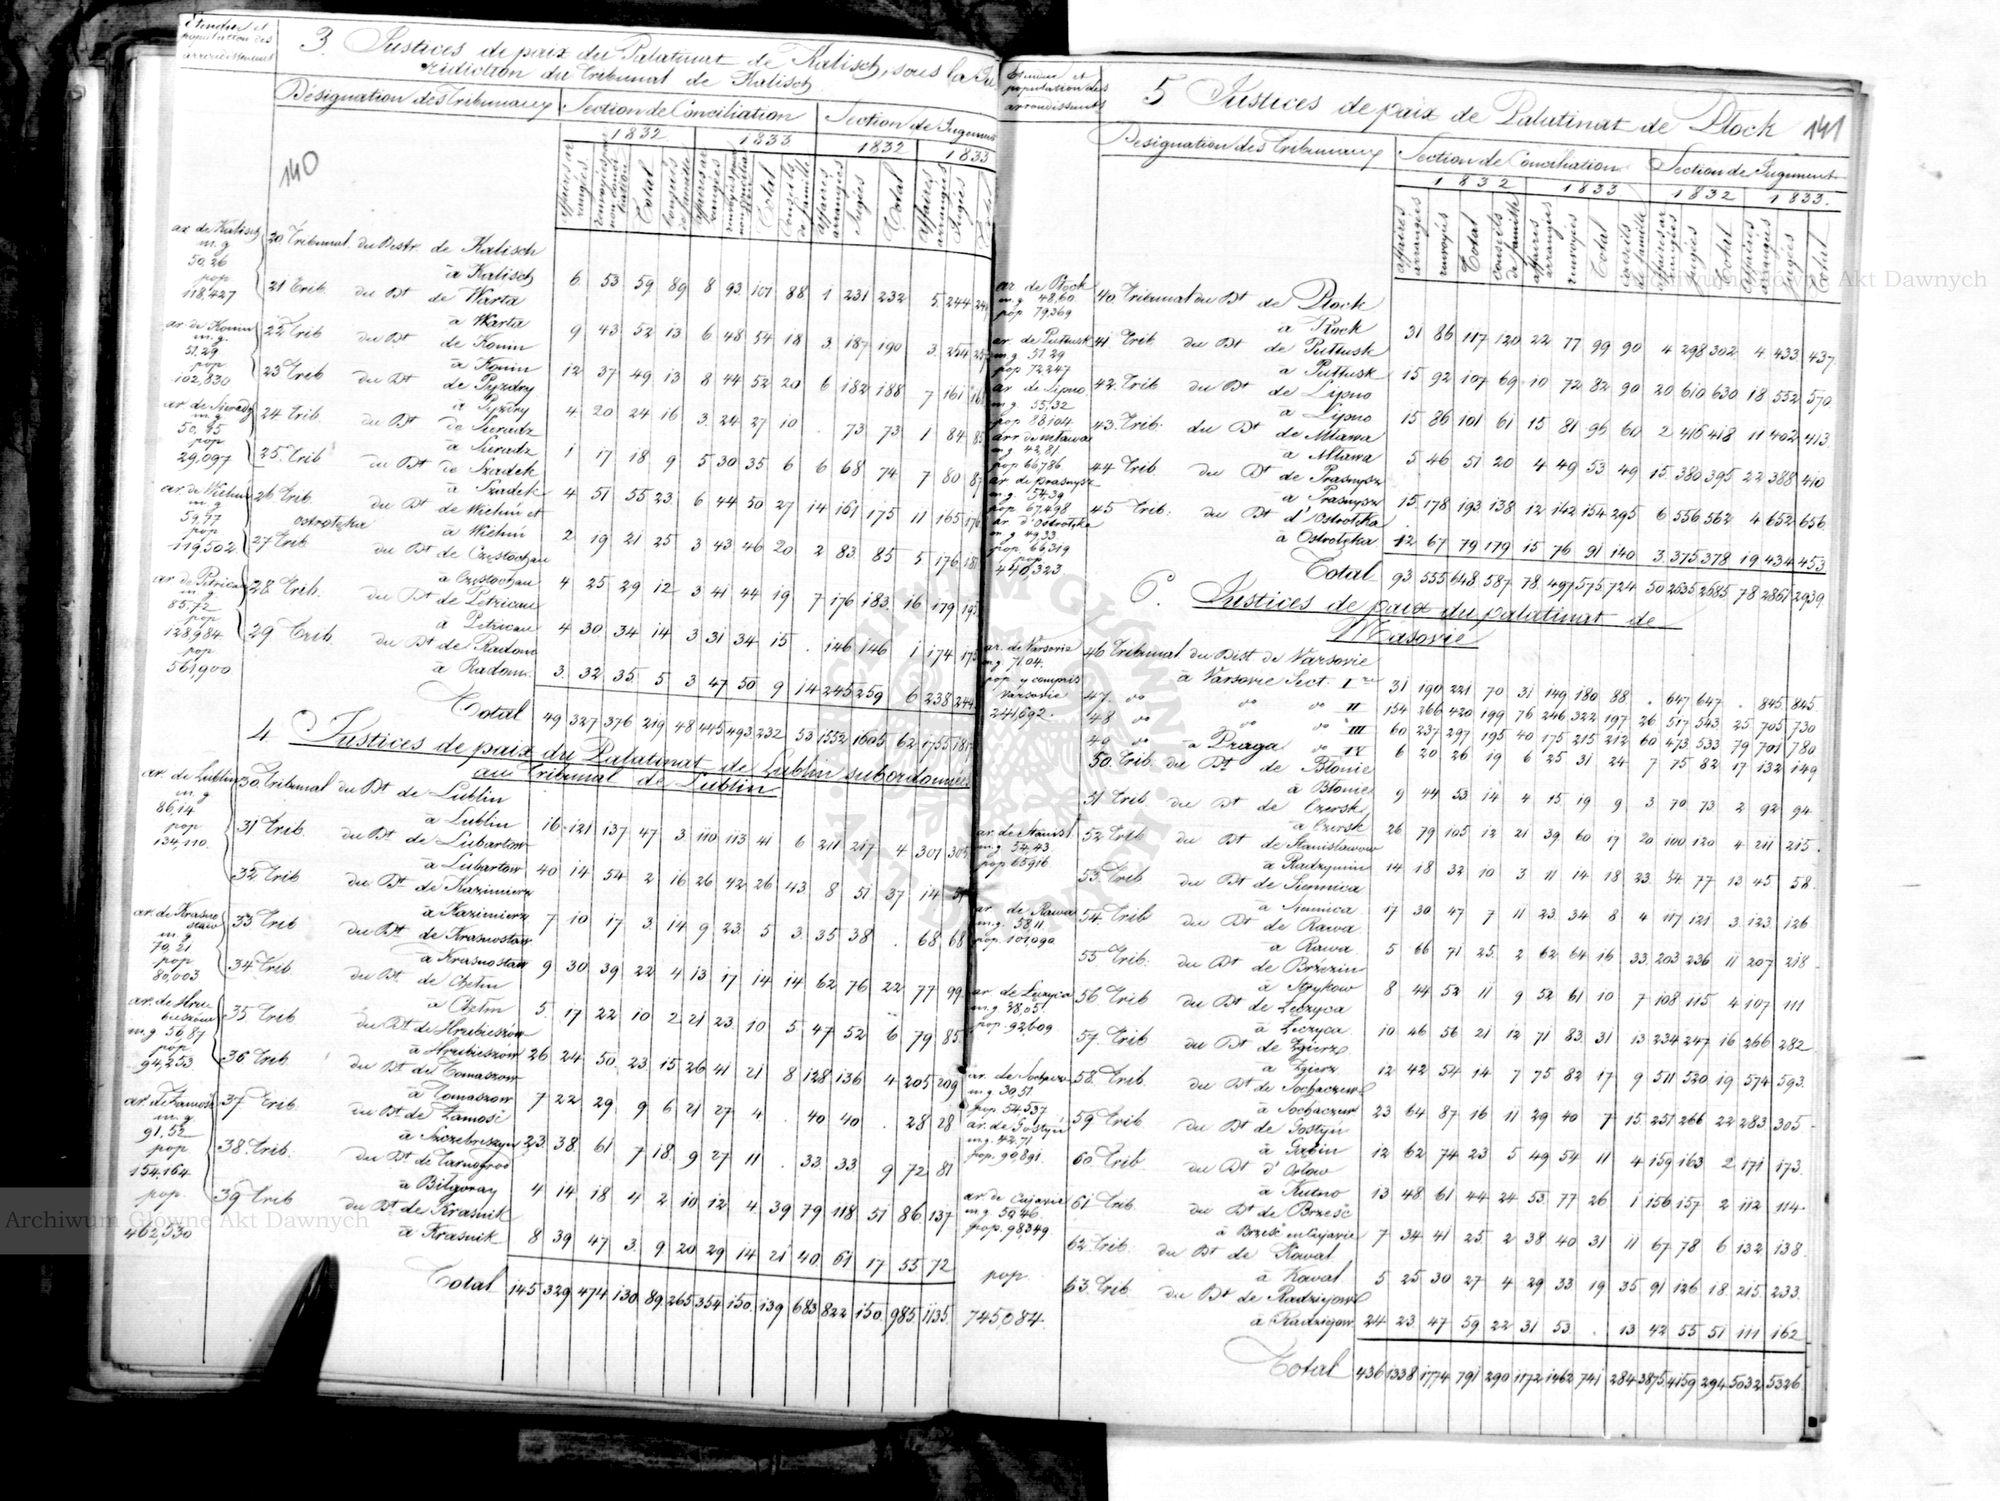 Etendue et
population des
arrondissements
3. Justices de paix du Palatinat de Kalisch, sous la Ju
ridiction du Tribunal de Kalisch
Désignation des Tribunaux Section de Conciliation Section de Jugement
1832 1833 1832 1833
140
ar. de Kalisch
m.g
50,26
pop
118,427
20 Tribunal du Distr. de Kalisch
à Kalisch 6 53 59 89 8 93 101 88 1 231 232 5 244
21 Trib. du Dt de Warta
à Warta 9 43 52 13 6 48 54 18 3 187 190 3 254
ar. de Konin
m.g.
51,29
pop
102,830
22 Trib du Dt de Konin
à Konin 12 37 49 13 8 44 52 20 6 182 188 7 161 168
23 Trib du Dt de Pyzdry
à Pyzdry 4 20 24 16 3 24 27 10 . 73 73 1 84 85
ar. de Sieradz
m.g
50,45
pop
29,097
24 Trib. du Dt de Sieradz
à Sieradz 1 17 18 9 5 30 35 6 6 68 74 7 80 87
25 Trib du Dt de Szadek
à Szadek 4 51 55 23 6 44 50 27 14 161 175 11 165 176
ar. de Wieluń
m.g
59,77
pop
119,502
26 Trib. du Dt de Wieluń et
ostrołęka à Wieluń 2 19 21 25 3 43 46 20 2 83 85 5 176 181
27 Trib du Dt de Częstochau
à Częstochau 4 25 29 12 3 41 44 19 7 176 183 16 179 195
ar de Petricau
m.g.
85,72
pop
128,984
pop
561,900
28 Trib. du Dt de Petricau
à Petricau 4 30 34 14 3 31 34 15 . 146 146 1 174 175
29 Trib. du Dt de Radom
à Radom. 3 32 35 5 3 47 50 9 14 245 259 6 238 244
Total 49 327 376 219 48 445 493 232 53 1552 1605 62 1755 1817
4. Justices de paix du Palatinat de Lublin subordonnées
au Tribunal de Lublin
ar. de Lublin
m.g
86,14
pop
134,110
30 Tribunal du Dt de Lublin
à Lublin 16 121 137 47 3 110 113 41 6 211 217 4 301 305
31 Trib. du Dt de Lubartow
à Lubartow 40 14 54 2 16 26 42 26 43 8 51 37 14 51
32 Trib du Dt de Kazimierz
à Kazimierz 7 10 17 3 14 9 23 5 3 35 38 . 68 68
ar. de Krasno
staw
m.g
70,21
pop
80,003
33 Trib du Dt de Krasnostaw
à Krasnostaw 9 30 39 22 4 13 17 14 14 62 76 22 77 99
34 Trib. du Dt. de Chełm
à Chełm 5 17 22 10 2 21 23 10 5 47 52 6 79 85
ar. de Hru
bieszów
m.g 56,87
pop
94,253
35 Trib du Dt de Hrubieszów
à Hrubieszow 26 24 50 23 15 26 41 21 8 128 136 4 205 209
36 Trib. du Dt de Tomaszow
à Tomaszow 7 22 29 9 6 21 27 4 . 40 40 . 28 28
ar. de Zamość
m.g
91,52
pop
154,164
pop.
462,530
37 Trib. du Dt de Zamość
à Szczebrzeszyn 23 38 61 7 18 9 27 11 . 33 33 9 72 81
38 Trib. du Dt de Tarnogrod
à Biłgoray 4 14 18 4 2 10 12 4 39 79 118 51 86 137
39 Trib du Dt de Krasnik
à Krasnik 8 39 47 3 9 20 29 14 21 40 61 17 55 72
Total 145 329 474 130 89 265 354 150 139 683 822 150 985 1135
Etendue et
population des
arrondissements
5 Justices de paix de Palatinat de Plock 141
Désignation des Tribunaux Section de Conciliation Section de Jugement
1832 1833 1832 1833.
ar de Plock
m.g 48,60
pop 79,369
40 Tribunal du Dt de Plock
à Plock 31 86 117 120 22 77 99 90 4 298 302 4 433 437
ar. de Pułtusk
m.g 51 29
pop 72247
41 Trib du Dt de Pułtusk
à Pułtusk 15 92 107 69 10 72 82 90 20 610 630 18 552 570
ar de Lipno
m.g 55,32
pop 83104
42 Trib du Dt de Lipno
à Lipno 15 86 101 61 15 81 96 60 2 416 418 11 402 413
arr de Mława
m.g 42,81
pop 66,786
43 Trib. du Dt de Mława
à Mława 5 46 51 20 4 49 53 49 15 380 395 22 388 410
ar. de Prasnysz
m.g 54,39
pop 67,498
44 Trib du Dt de Prasnysz
à Prasnysz 15 178 193 138 12 142 154 295 6 556 562 4 652 656
ar. d'Ostrołęka
m.g 49,33
pop. 66,319
pop
440,323
45 Trib. du Dt d'Ostrołęka
à Ostrołęka 12 67 79 179 15 76 91 140 3 375 378 19 434 453
Total 93 555 648 587 78 497 575 724 50 2635 2685 78 2861 2939
6. Justices de paix du palatinat de
Masovie
ar. de Varsovie
m.g 71,04.
pop y compris
Varsovie
241,692.
46 Tribunal du Dist de Varsovie
à Varsovie Sect. I re 31 190 221 70 31 149 180 88 . 647 647 . 845 845
47 do do do II 154 266 420 199 76 246 322 197 26 517 543 25 705 730
48 do do do III 60 237 297 195 40 175 215 212 60 473 533 79 701 780
49 do à Praga do IV 6 20 26 19 6 25 31 24 7 75 82 17 132 149
50 Trib du Dt de Błonie
à Błonie 9 44 53 14 4 15 19 9 3 70 73 2 92 94
51 Trib. du Dt de Czersk
à Czersk 26 79 105 12 21 39 60 17 20 100 120 4 211 215
ar. de Stanisł
m.g 54,43
pop 65916
52 Trib du Dt de Stanislawow
à Radzymin 14 18 32 10 3 11 14 18 23 54 77 13 45 58
53 Trib du Dt de Siennica
à Siennica 17 30 47 7 11 23 34 8 4 117 121 3 123 126
ar. de Rawa
m.g. 58,11
pop. 101,090
54 Trib du Dt de Rawa
à Rawa 5 66 71 25 2 62 64 16 33 203 236 11 207 218
55 Trib. du Dt de Brzezin
à Strykow 8 44 52 11 9 52 61 10 7 108 115 4 107 111
ar de Łęczyca
m.g. 38,05
pop. 92,609
56 Trib du Dt de Łęczyca
à Łęczyca 10 46 56 21 12 71 83 31 13 234 247 16 266 282
57 Trib. du Dt de Zgierz
à Zgierz 12 42 54 14 7 75 82 17 9 511 520 19 574 593
m.g 30,51
pop 54,537
58 Trib. du Dt de Sochaczew
à Sochaczew 23 64 87 16 11 29 40 7 15 251 266 22 283 305
ar. de Gostyń
m.g. 42,71
pop. 90,891
59 Trib du Dt de Gostyń
à Gąbin 12 62 74 23 5 49 54 11 4 159 163 2 171 173
60 Trib du Dt d'Orlow
à Kutno 13 48 61 44 24 53 77 26 1 156 157 2 112 114
ar. de Cujavie
m.g 59,46
pop. 98349
61 Trib. du Dt de Brześć
à Brześć en Cujavie 7 34 41 25 2 38 40 31 11 67 78 6 132 138
62 Trib. du Dt de Kowal
à Kowal 5 25 30 27 4 29 33 19 35 91 126 18 215 233
63 Trib du Dt de Radziejow
à Radziejow 24 23 47 59 22 31 53 . 13 42 55 51 111 162
pop.
745,084
Total 436 1338 1774 791 290 1172 1462 741 284 3875 4159 294 5032 5326
Archiwum Główne Akt Dawnych